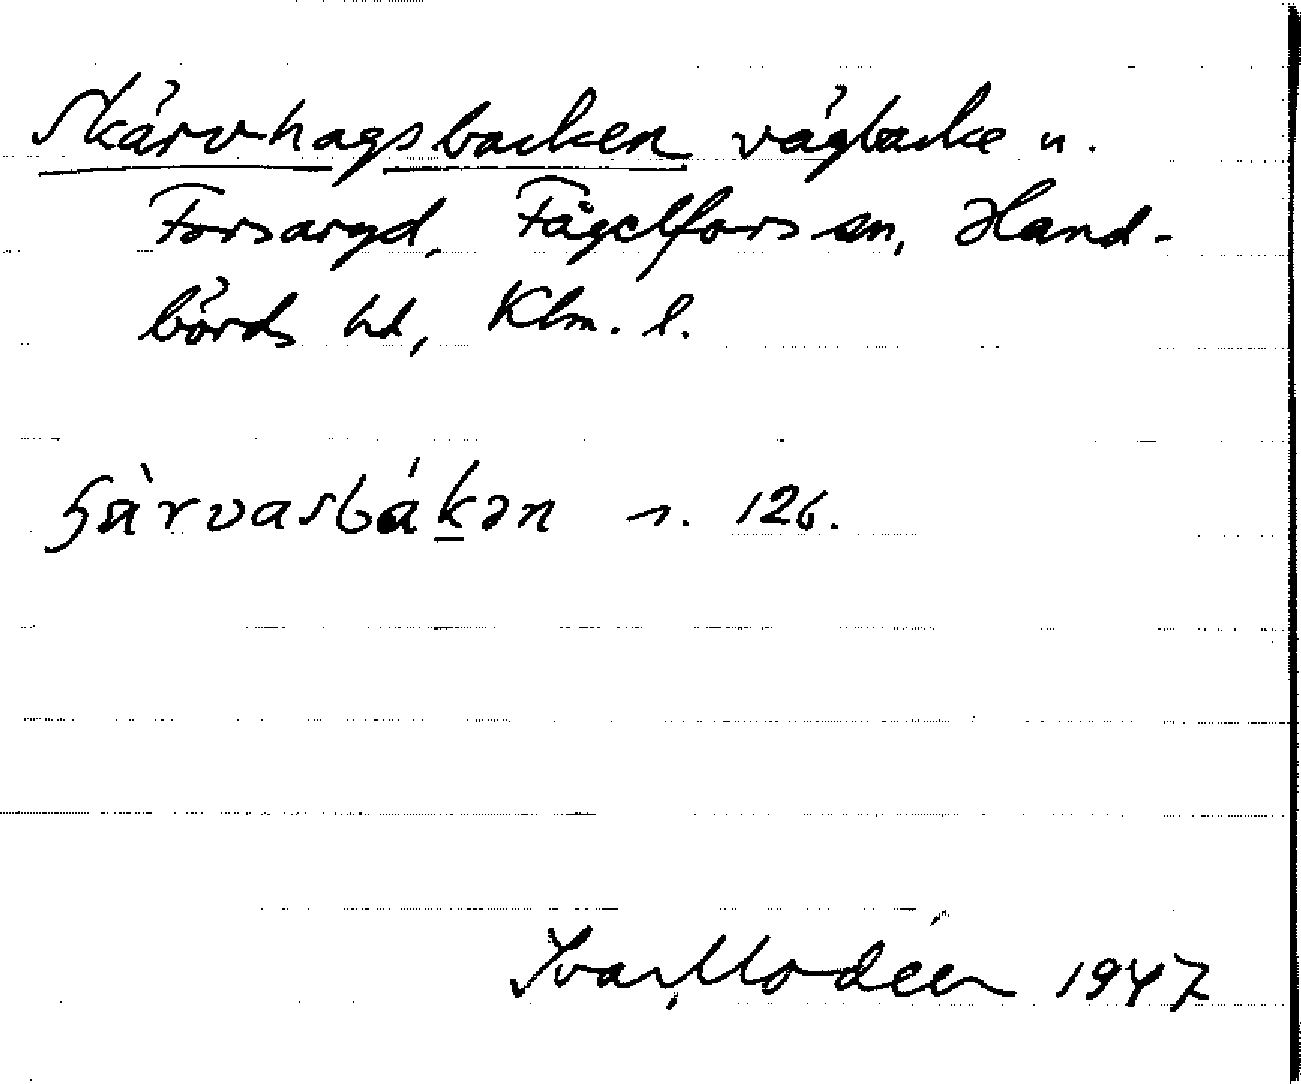 Skärvhagsbacken vägbacke n.
Forsaryd, Fågelfors sn, Hand-
börds hd, Klm. l.
s. 126.
Ivar Modéer 1947